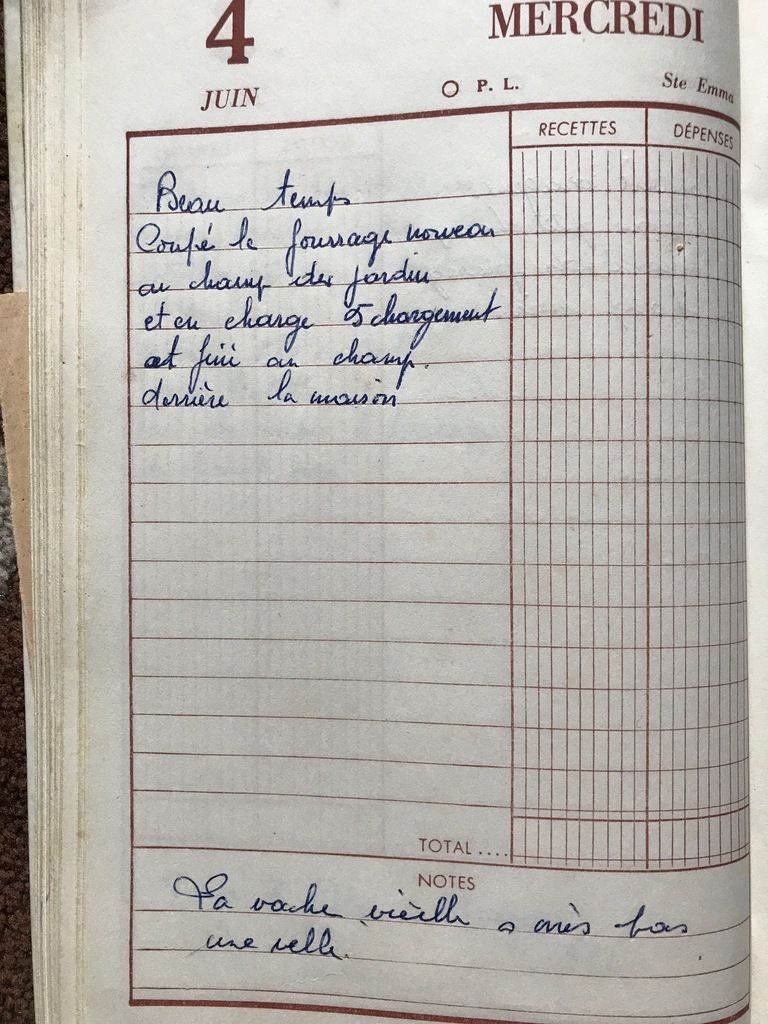 4 MERCREDI
JUIN P. L. Ste Emma
RECETTES DÉPENSES
Beau temps
Coupé le fourrage nouveau
au champ des jardin
et en charge 5 chargement
et fini au champ.
derrière la maison
TOTAL ....
NOTES
La vache vieille a bas
une velle.